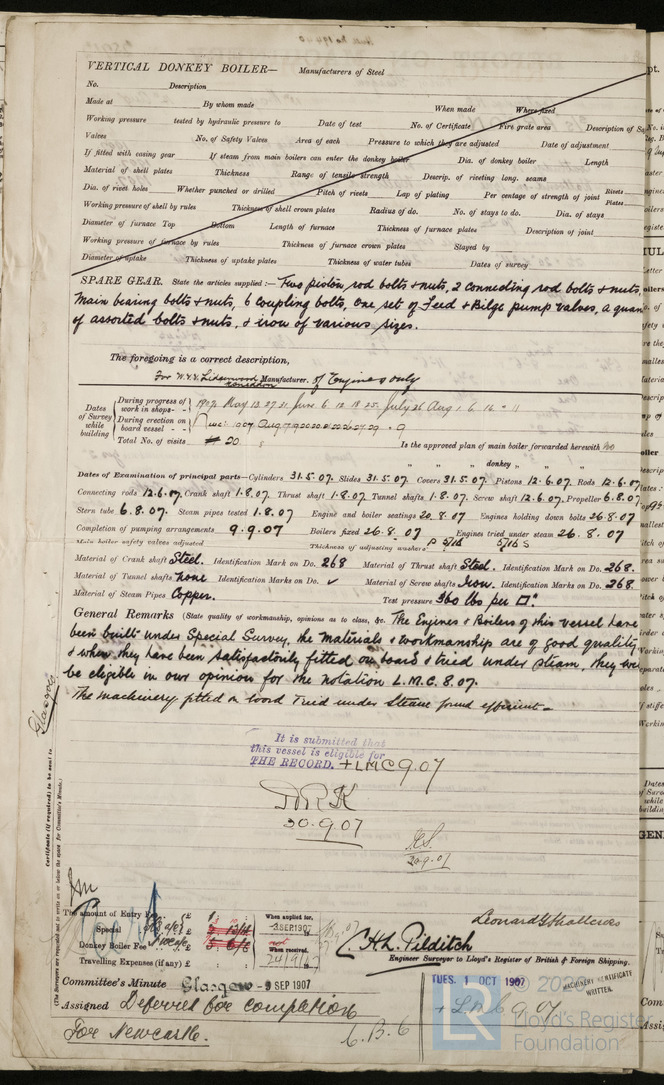 VERTICAL DONKEY BOILER— Manufacturers of Steel
No. Description
Made at By whom made When made Where fixed
Working pressure tested by hydraulic pressure to Date of test No. of Certificate Fire grate area Description of
Valves No. of Safety Valves Area of each Pressure to which they are adjusted Date of adjustment
If fitted with casing gear If steam from main boilers can enter the donkey boiler Dia. of donkey boiler Length
Material of shell plates Thickness Range of tensile strength Descrip. of riveting long. seams
Dia. of rivet holes Whether punched or drilled Pitch of rivets Lap of plating Per centage of strength of joint Rivets
Plates
Working pressure of shell by rules Thickness of shell crown plates Radius of do. No. of stays to do. Dia. of stays
Diameter of furnace Top Bottom Length of furnace Thickness of furnace plates Description of joint
Working pressure of furnace by rules Thickness of furnace crown plates Stayed by
Diameter of uptake Thickness of uptake plates Thickness of water tubes Dates of survey
SPARE GEAR. State the articles supplied :— Two piston rod bolts & nuts, 2 connecting rod bolts & nuts,
Main bearing bolts & nuts, 6 coupling bolts, one set of Feed & Bilge pump valves, a quan
of assorted bolts & nuts, & iron of various sizes.
The foregoing is a correct description,
For Manufacturer. of Engines only
Dates of Survey while building
During progress of work in shops - - 1907. May 13. 27. 31. June 6. 12. 18. 25. July 26 Aug 1. 6. 16
During erection on board vessel - - 1907 Aug
Total No. of visits 20 Is the approved plan of main boiler forwarded herewith No
" " " donkey " " "
Dates of Examination of principal parts—Cylinders 31.5.07. Slides 31.5.07. Covers 31.5.07. Pistons 12.6.07. Rods 12.6.07
Connecting rods 12.6.07. Crank shaft 1.8.07. Thrust shaft 1.8.07. Tunnel shafts 1.8.07. Screw shaft 12.6.07. Propeller 6.8.07
Stern tube 6.8.07. Steam pipes tested 1.8.07 Engine and boiler seatings 20.8.07 Engines holding down bolts 26.8.07
Completion of pumping arrangements 9.9.07 Boilers fixed 26.8.07 Engines tried under steam 26.8.07
Main boiler safety valves adjusted Thickness of adjusting washers P 5/16 S
Material of Crank shaft Steel. Identification Mark on Do. 268 Material of Thrust shaft Steel. Identification Mark on Do. 268.
Material of Tunnel shafts none Identification Marks on Do. ✓ Material of Screw shafts Iron. Identification Marks on Do. 268
Material of Steam Pipes Copper. Test pressure 360 lbs per □".
General Remarks (State quality of workmanship, opinions as to class, &c. The Engines & Boilers of this vessel have
been built under Special Survey, the Materials & workmanship are of good quality
& when they have been satisfactorily fitted on board & tried under steam, they
be eligible in our opinion for the notation L.M.C. 8.07.
The machinery fitted on board tried under Steam found efficient –
It is submitted that
this vessel is eligible for
THE RECORD. + LMC 9.07
30.9.07
30.9.07
Glasgow
Certificate (if required) to be sent to
(The Surveyors are requested not to write on or below the space for Committee's Minute.)
The amount of Entry Fee £ When applied for,
Special £ -3 SEP 1907
Donkey Boiler Fee £ When received,
Travelling Expenses (if any) £
H. L. Pilditch
Engineer Surveyor to Lloyd's Register of British & Foreign Shipping.
Committee's Minute Glasgow -9 SEP 1907
TUES. 1 OCT 1907
MACHINERY CERTIFICATE
WRITTEN.
Assigned Deferred for completion
+ LMC 9.07
For Newcastle.
LR
2020
Lloyd's Register
Foundation